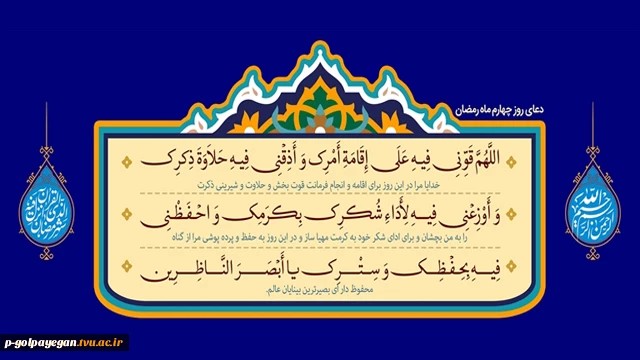 دعای روز چهارم ماه رمضان
اللَّهُمَّ قَوِّنِي فِيهِ عَلَى إِقَامَةِ أَمْرِكَ وَ أَذِقْنِي فِيهِ حَلَاوَةَ ذِكْرِكَ
خدایا مرا در این روز برای اقامه و انجام فرمانت قوت بخش و حلاوت و شیرینی ذکرت
وَ أَوْزِعْنِي فِيهِ لِأَدَاءِ شُكْرِكَ بِكَرَمِكَ وَ احْفَظْنِي
را به من بچشان و برای ادای شکر خود به کرمت مهیا ساز و در این روز به حفظ و پرده پوشی مرا از گناه
فِيهِ بِحِفْظِكَ وَ سِتْرِكَ يَا أَبْصَرَ النَّاظِرِينَ
محفوظ دار ای بصیرترین بینایان عالم.
بسم الله الرحمن الرحیم
p-golpayegan.tvu.ac.ir